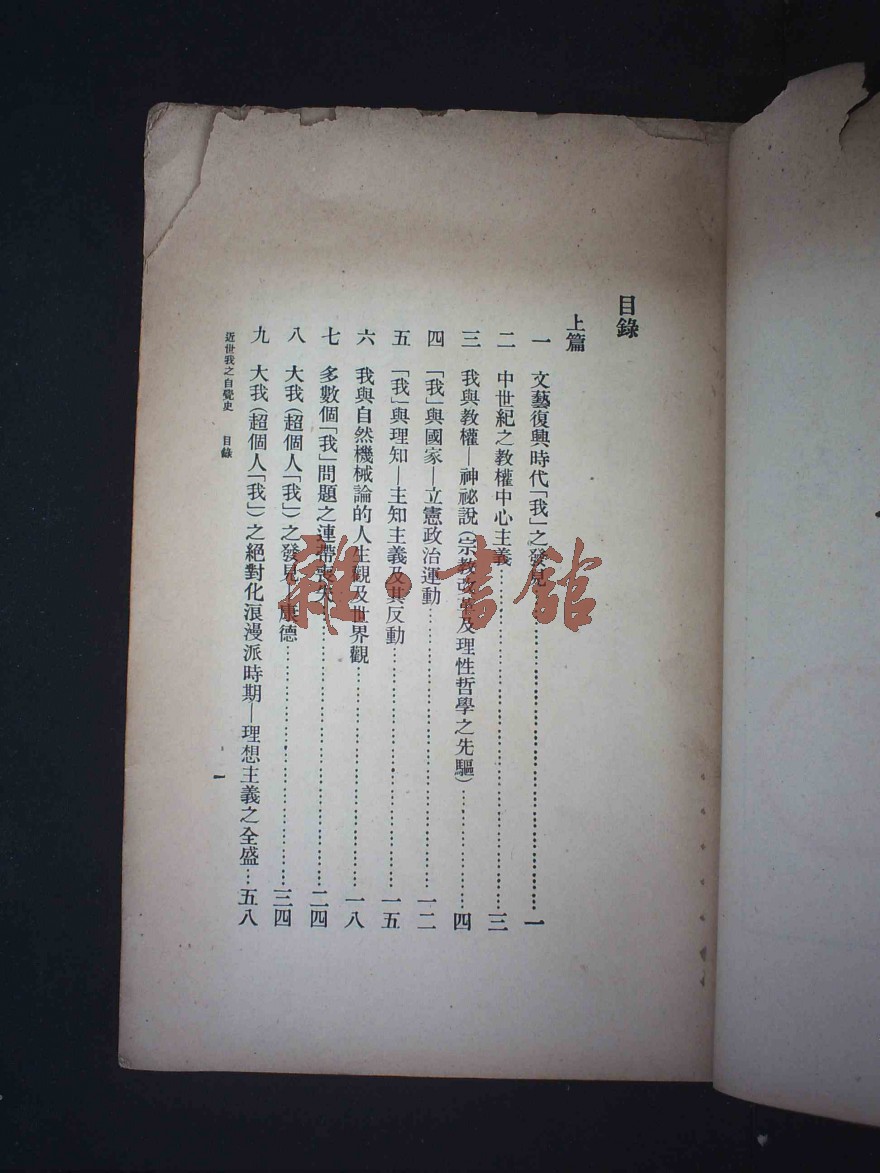 目錄
上篇
一 文藝復興時代「我」之發見……一
二 中世紀之教權中心主義……三
三 我與教權—神祕說(宗教改革及理性哲學之先驅)……四
四 「我」與國家—立憲政治運動……一二
五 「我」與理知—主知主義及其反動……一五
六 我與自然機械論的人生觀及世界觀……一八
七 多數個「我」問題之連帶喪失……二四
八 大我(超個人「我」)之發見—康德……三四
九 大我(超個人「我」)之絕對化浪漫派時期—理想主義之全盛…五八
近世我之自覺史 目錄
一
雜·書館